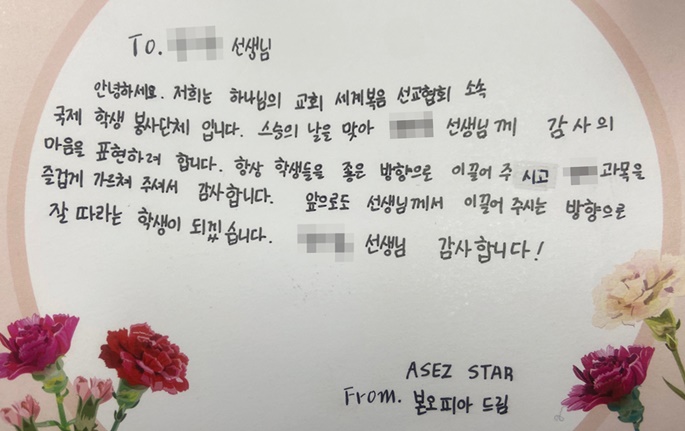 To. 선생님
안녕하세요. 저희는 하나님의 교회 세계복음 선교협회 소속
국제 학생 봉사단체 입니다. 스승의 날을 맞아 선생님께 감사의
마음을 표현하려 합니다. 항상 학생들을 좋은 방향으로 이끌어 주시고 과목을
즐겁게 가르쳐 주셔서 감사합니다. 앞으로도 선생님께서 이끌어 주시는 방향으로
잘 따라는 학생이 되겠습니다. 선생님 감사합니다!
ASEZ STAR
From. 본오피아 드림